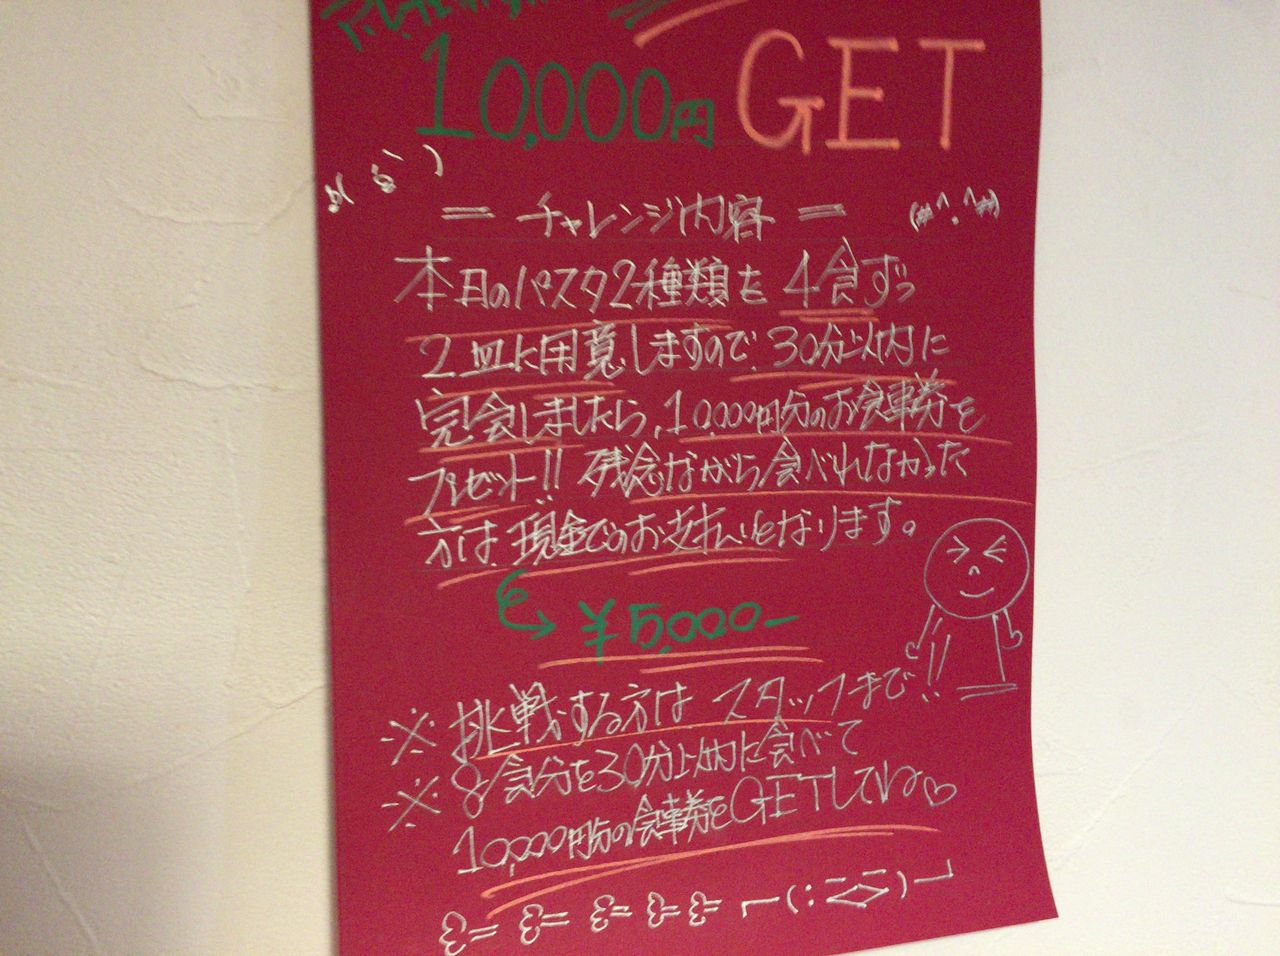 10,000円 GET
= チャレンジ内容 =
(#^.^#)
本日のパスタ2種類を4食ずつ
2皿に用意しますので、30分以内に
完食しましたら、10,000円分のお食事券を
プレゼント!! 残念ながら食べれなかった
方は、現金でのお支払いとなります。
¥5,000-
※挑戦する方はスタッフまで!!
※8食分を30分以内に食べて
10,000円分の食事券をGETしてね♡